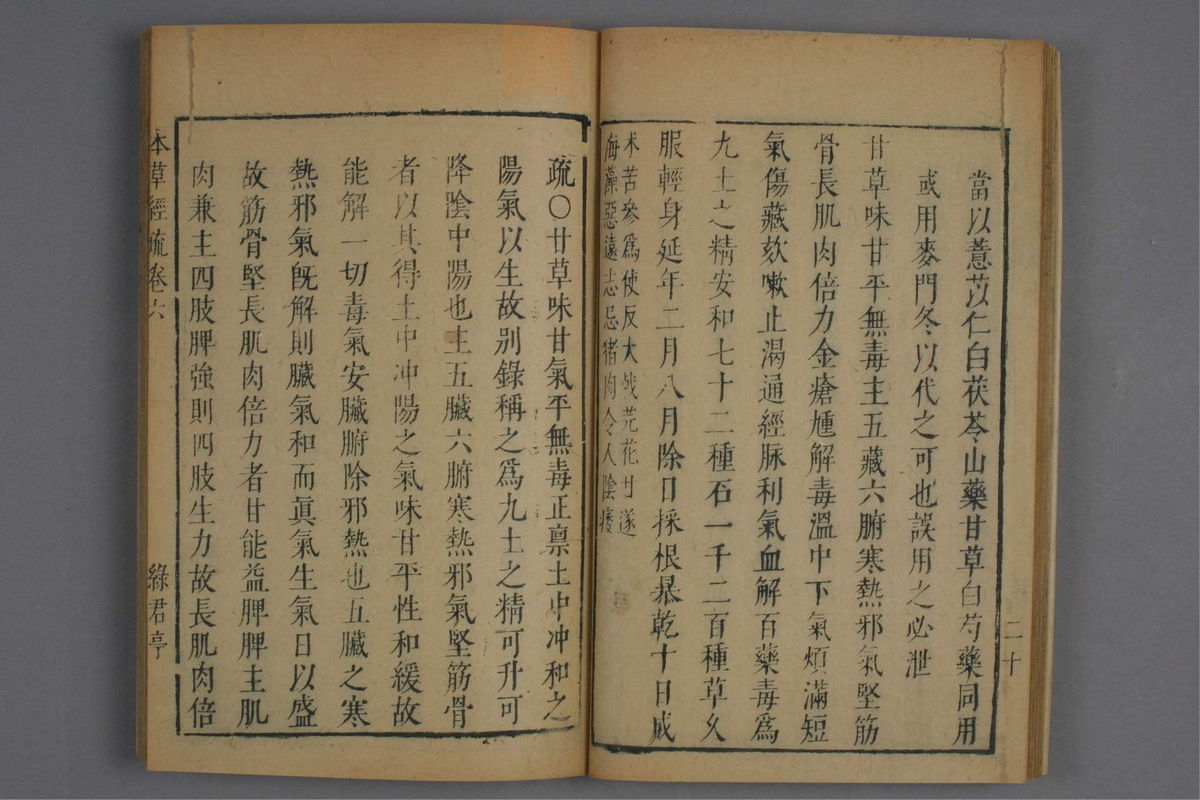 當以薏苡仁白茯苓山藥甘草白芍藥同用
或用麥門冬以代之可也誤用之必泄
甘草味甘平無毒主五藏六腑寒熱邪氣堅筋
骨長肌肉倍力金瘡尰解毒溫中下氣煩滿短
氣傷藏欬嗽止渴通經脉利氣血解百藥毒爲
九土之精安和七十二種石一千二百種草久
服輕身延年二月八月除日採根暴乾十日成
术苦參爲使反大戟芫花甘遂
海藻惡遠志忌猪肉令人陰痿
二十
疏〇甘草味甘氣平無毒正禀土中冲和之
陽氣以生故别錄稱之爲九土之精可升可
降陰中陽也主五臟六腑寒熱邪氣堅筋骨
者以其得土中冲陽之氣味甘平性和緩故
能解一切毒氣安臟腑除邪熱也五臟之寒
熱邪氣旣解則臟氣和而眞氣生氣日以盛
故筋骨堅長肌肉倍力者甘能益脾脾主肌
肉兼主四肢脾強則四肢生力故長肌肉倍
本草經疏卷六
綠君亭